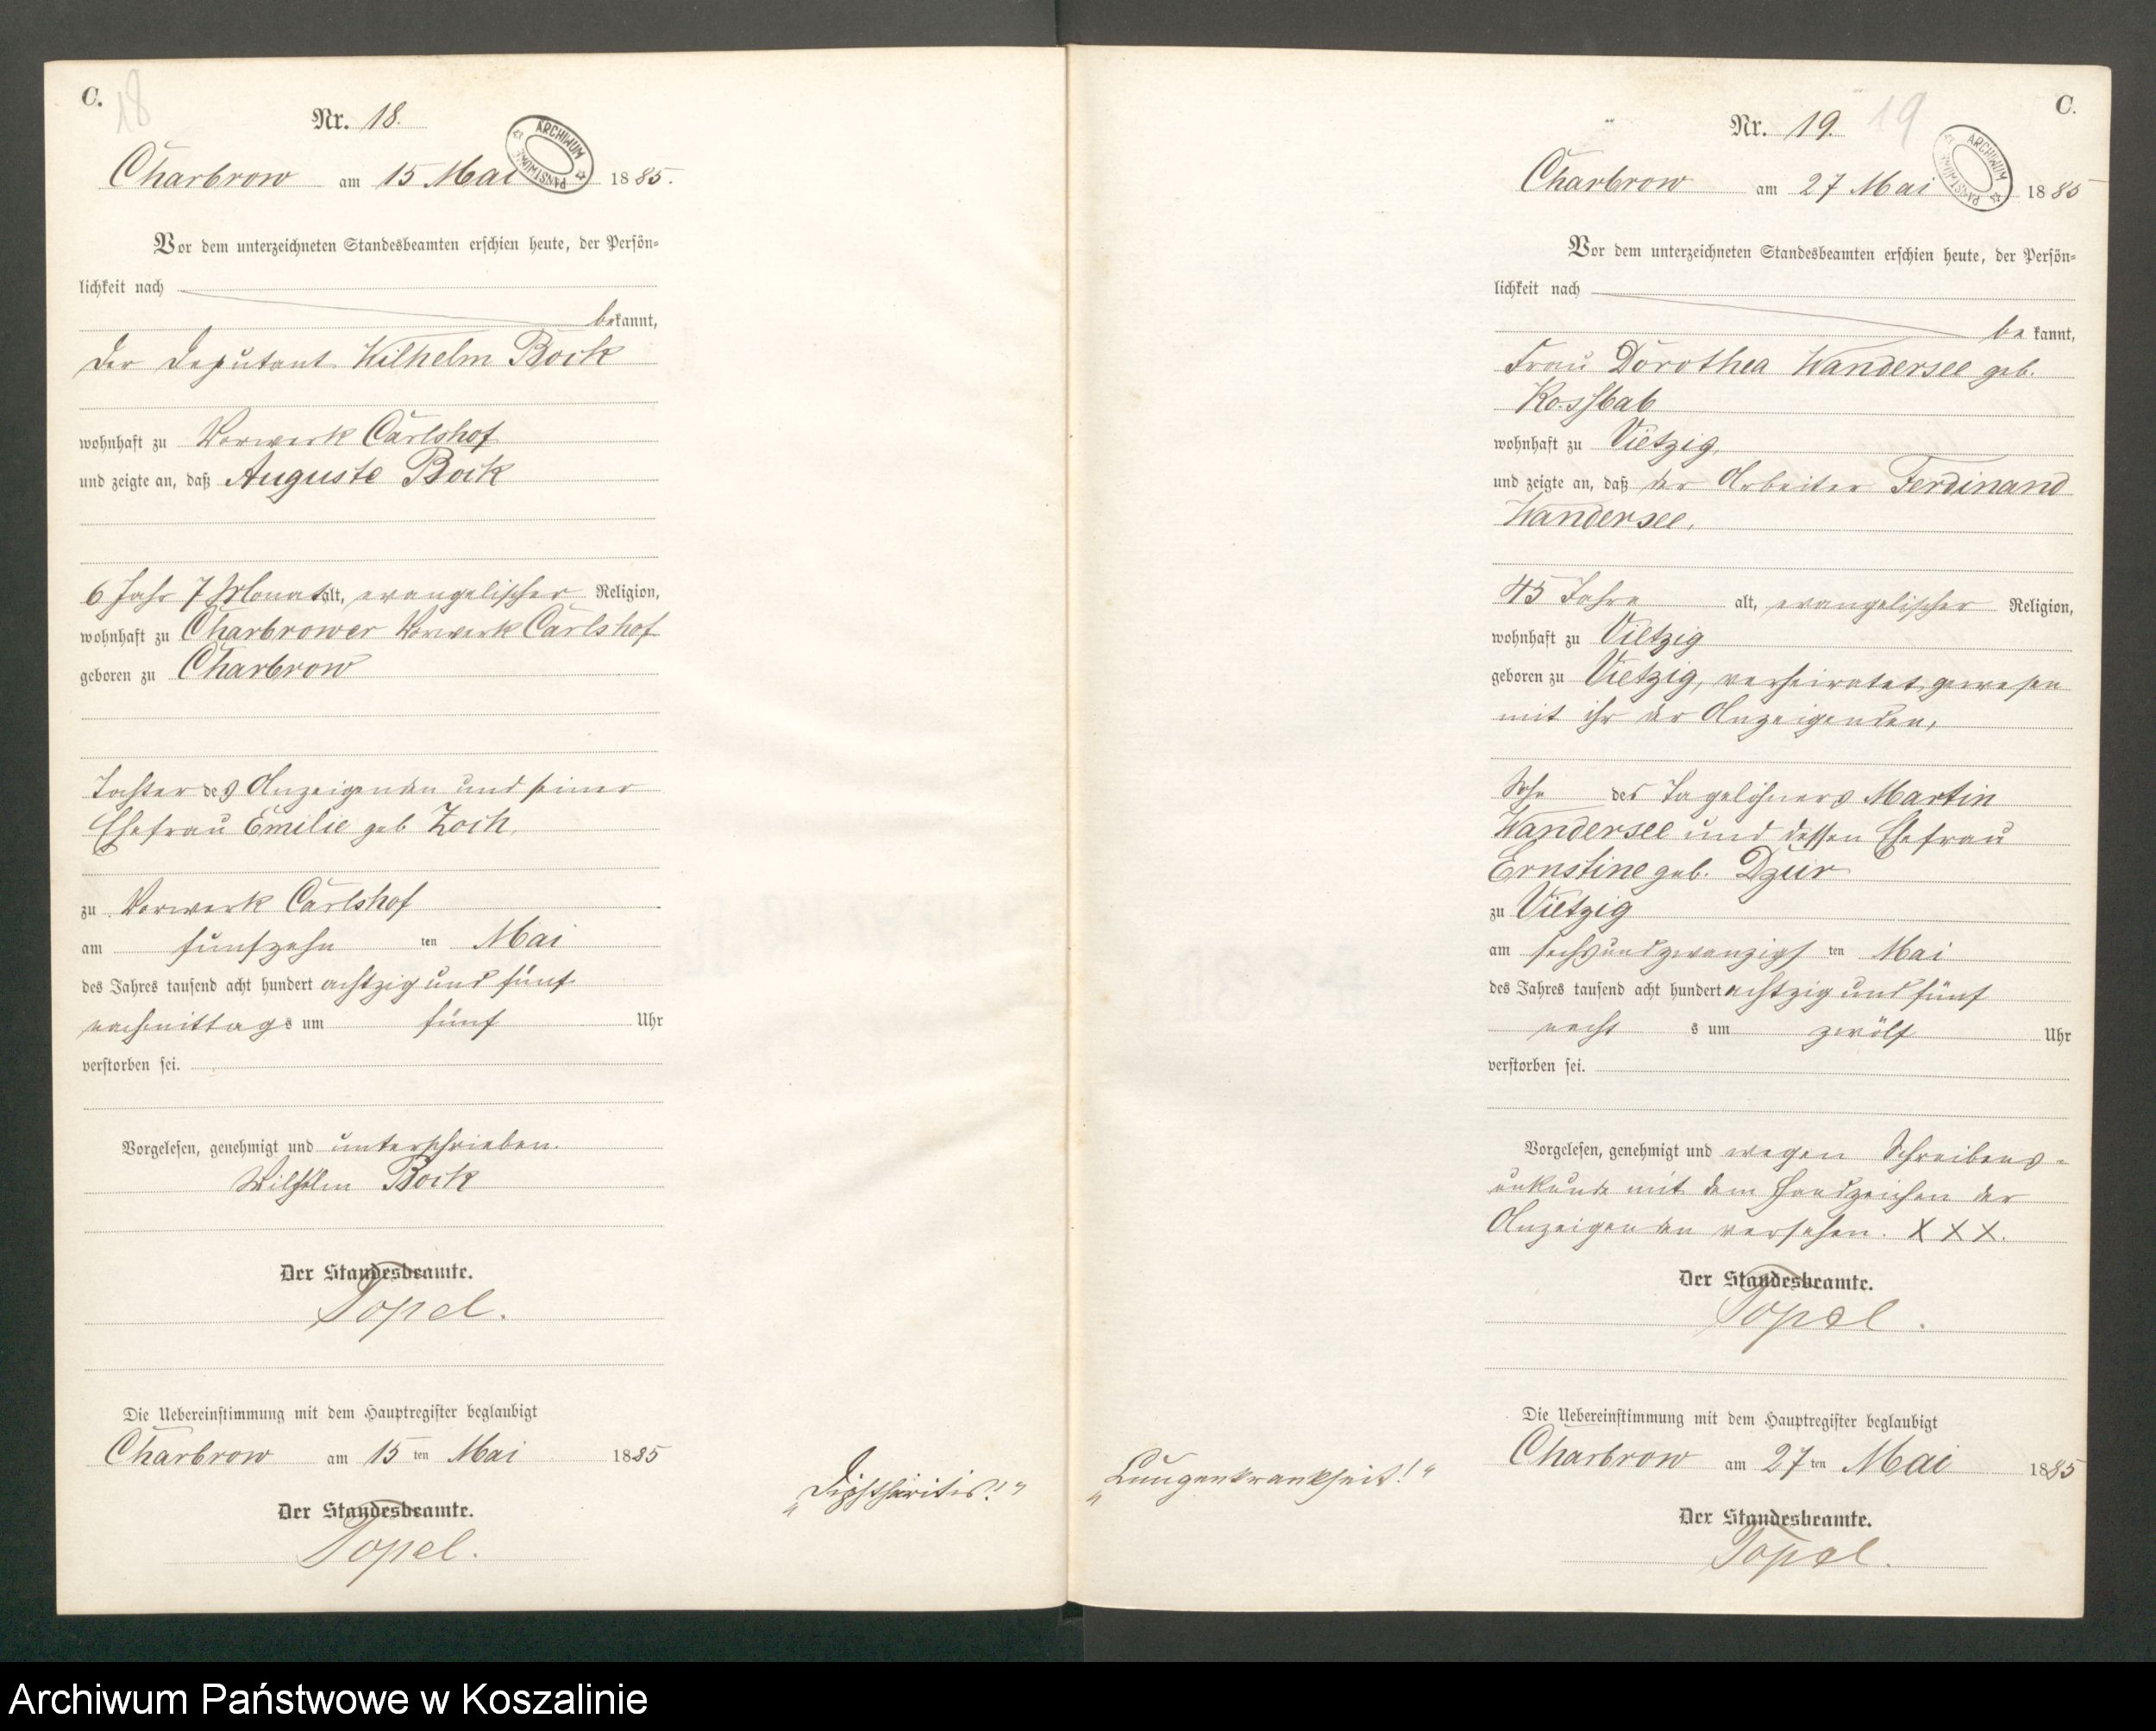 C.
18
Nr. 18.
ARCHIWUM PAŃSTWOWE
Charbrow am 15 Mai 1885.
Vor dem unterzeichneten Standesbeamten erschien heute, der Persön-
lichkeit nach
bekannt,
der Deputant Wilhelm Bock
wohnhaft zu Vorwerk Carlshof
und zeigte an, daß Auguste Bock
6 Jahr 7 Monat alt, evangelischer Religion,
wohnhaft zu Charbrower Vorwerk Carlshof
geboren zu Charbrow
Tochter des Anzeigenden und seiner
Ehefrau Emilie geb. Zoch,
zu Vorwerk Carlshof
am fünfzehn ten Mai
des Jahres tausend acht hundert achtzig und fünf
nachmittags um fünf Uhr
verstorben sei.
Vorgelesen, genehmigt und unterschrieben.
Wilhelm Bock
Der Standesbeamte.
Topel.
Die Uebereinstimmung mit dem Hauptregister beglaubigt
Charbrow am 15 ten Mai 1885
Der Standesbeamte.
Topel.
„Diphtheritis!“
C.
Nr. 19.
19
ARCHIWUM PAŃSTWOWE
Charbrow am 27 Mai 1885
Vor dem unterzeichneten Standesbeamten erschien heute, der Persön-
lichkeit nach
bekannt,
Frau Dorothea Wandersee geb.
Kossbab
wohnhaft zu Vietzig,
und zeigte an, daß der Arbeiter Ferdinand
Wandersee,
45 Jahre alt, evangelischer Religion,
wohnhaft zu Vietzig
geboren zu Vietzig, verheiratet gewesen
mit ihr der Anzeigenden,
Sohn des Tagelöhners Martin
Wandersee und dessen Ehefrau
Ernstine geb. Dzur
zu Vietzig
am sechsundzwanzigs ten Mai
des Jahres tausend acht hundert achtzig und fünf
nacht s um zwölf Uhr
verstorben sei.
Vorgelesen, genehmigt und wegen Schreibens-
unkunde mit dem Handzeichen der
Anzeigenden versehen. X X X.
Der Standesbeamte.
Topel.
Die Uebereinstimmung mit dem Hauptregister beglaubigt
Charbrow am 27 ten Mai 1885
Der Standesbeamte.
Topel.
„Lungenkrankheit!“
Archiwum Państwowe w Koszalinie